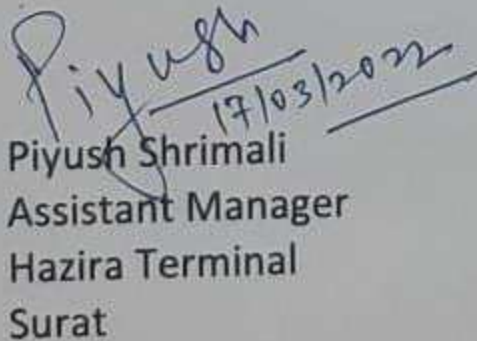 Piyush
17/03/2022
Piyush Shrimali
Assistant Manager
Hazira Terminal
Surat